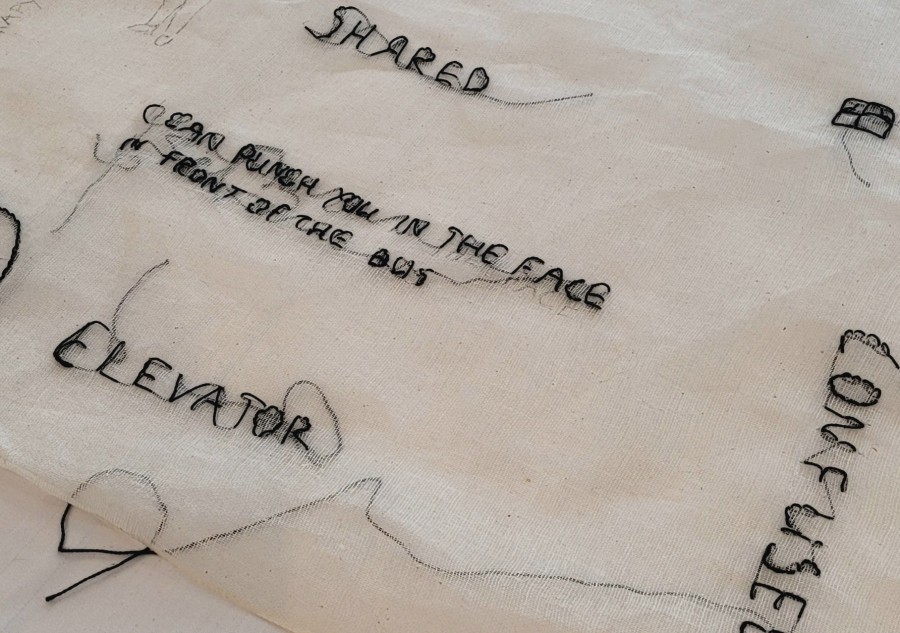 SHARED
CAN PUNCH YOU IN THE FACE
IN FRONT OF THE BUS
ELEVATOR
CONFUSE